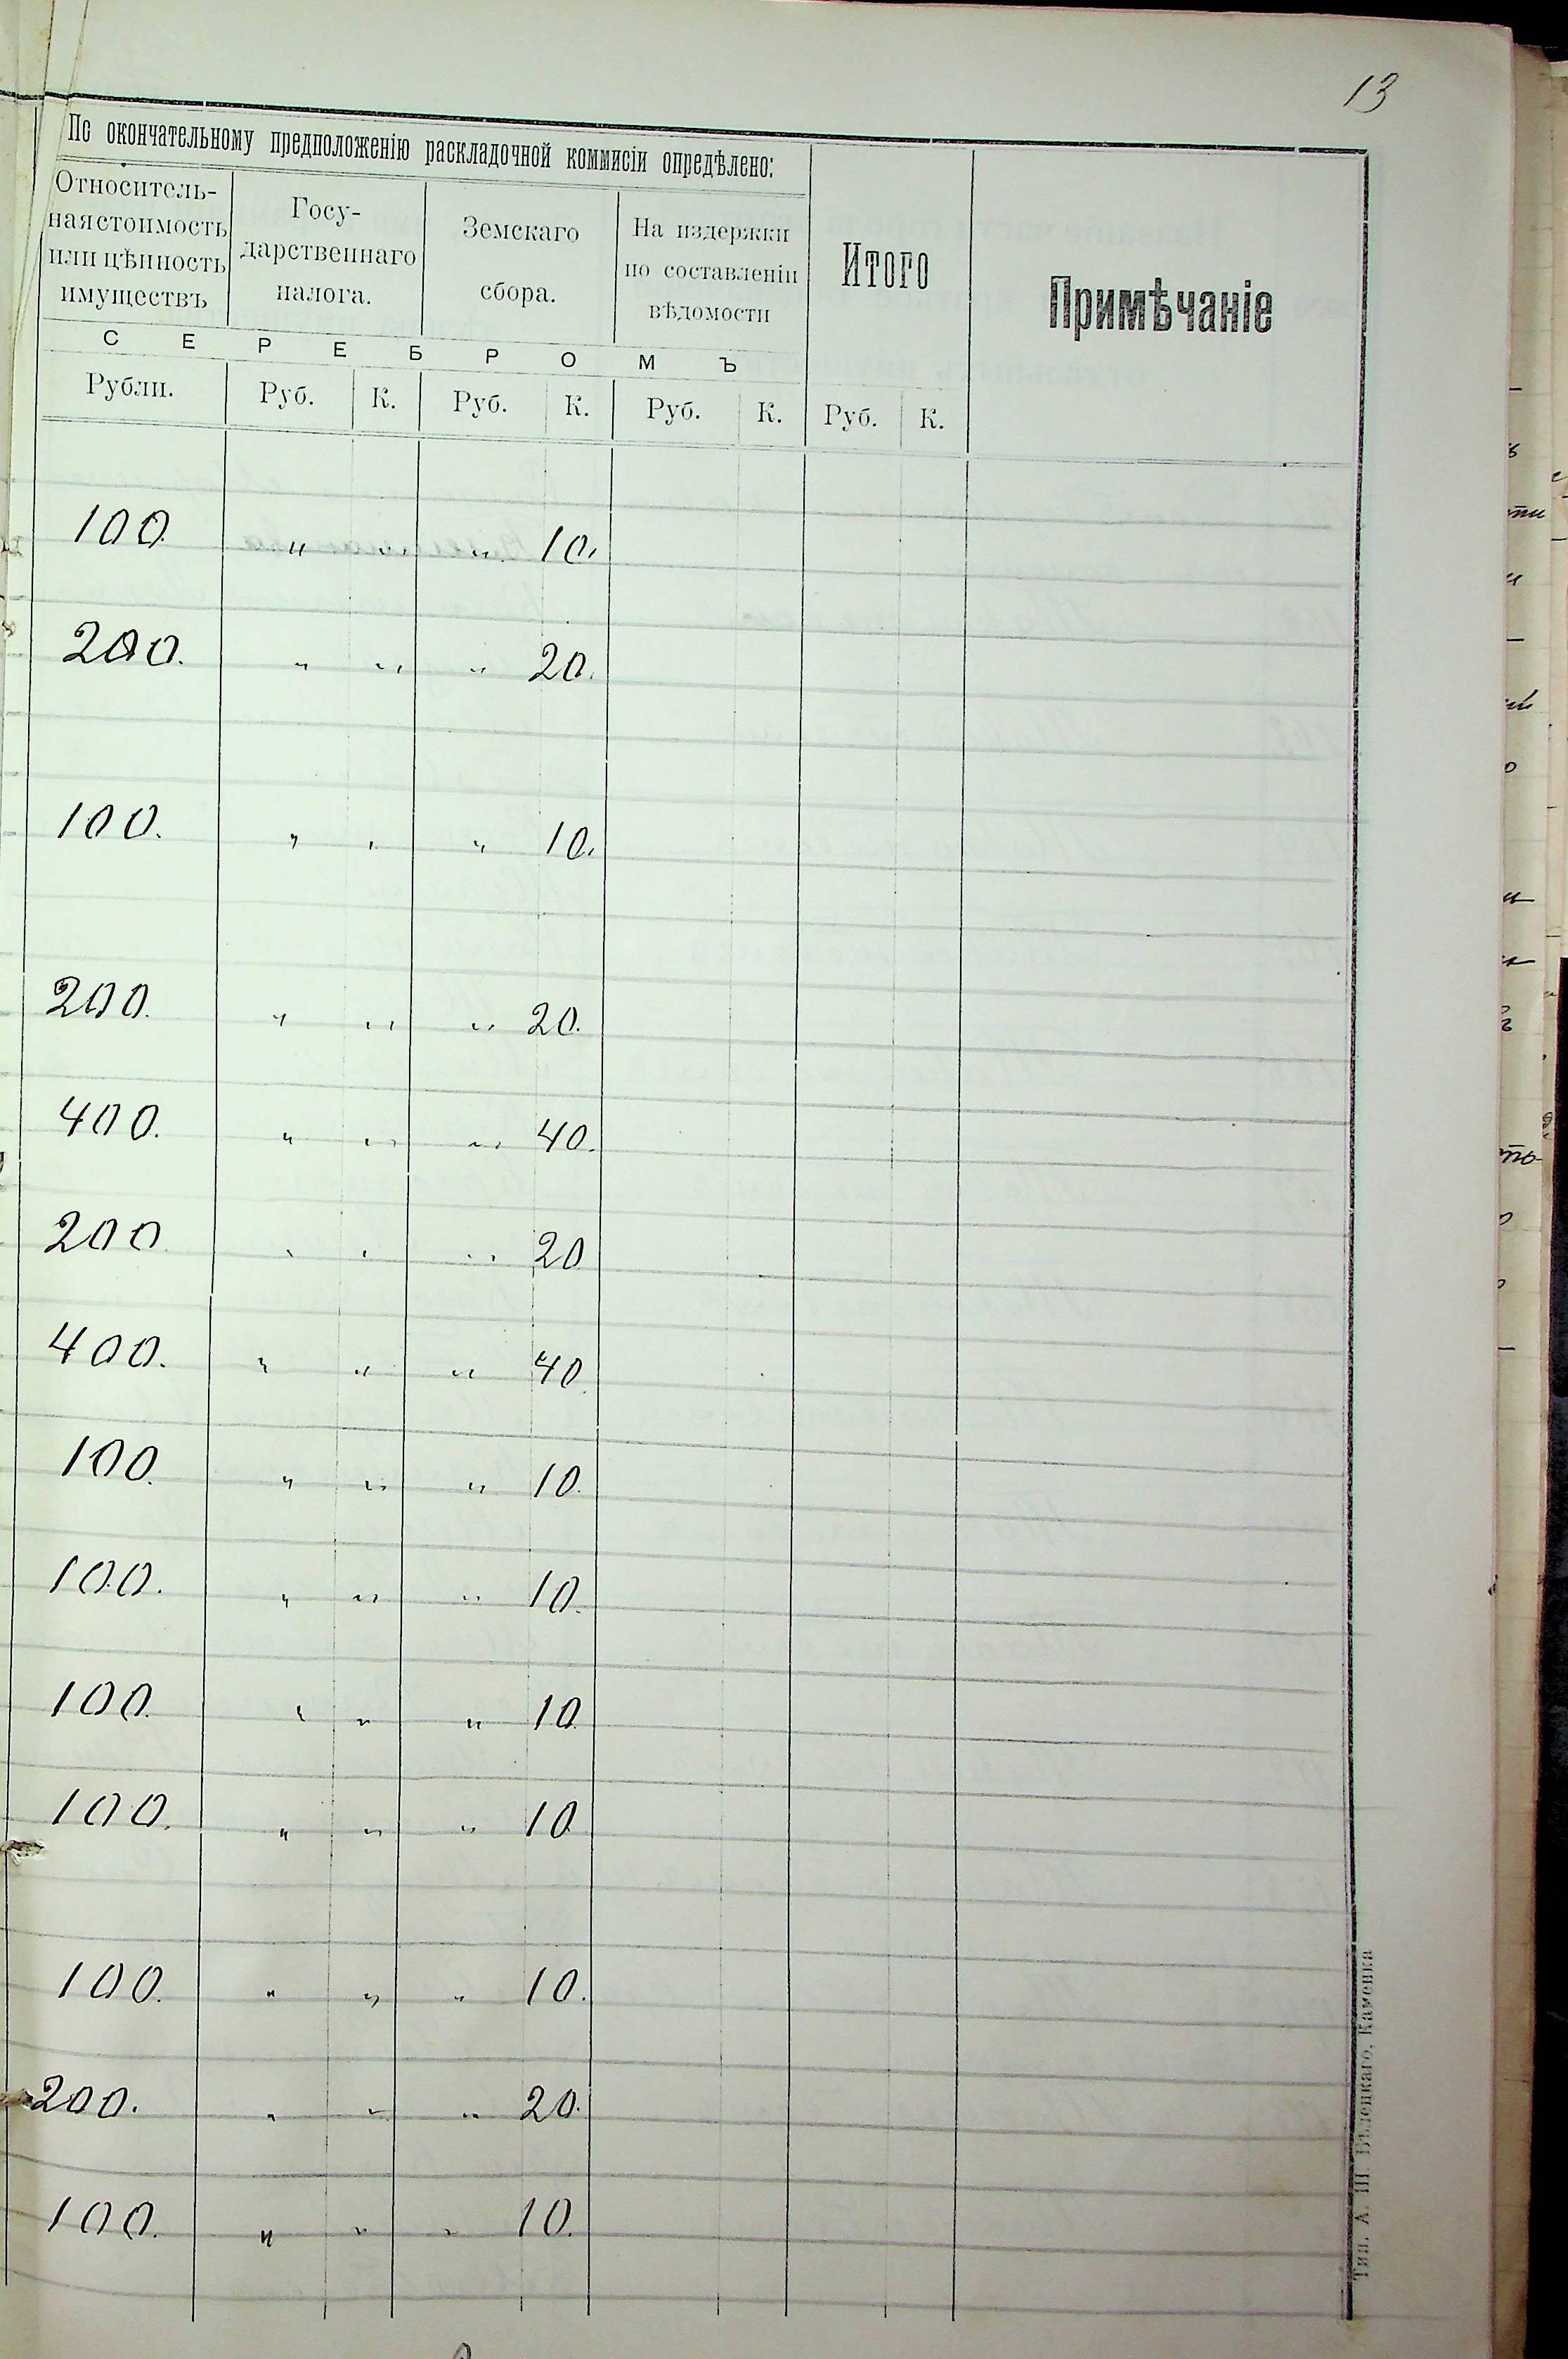 13
По окончательному предположенію раскладочной коммисіи опредѣлено:
Относитель-
ная стоимость
или цѣнность
имуществъ
Госу-
дарственнаго
налога.
Земскаго
сбора.
На издержки
по составленіи
вѣдомости
Итого
Примѣчаніе
С Е Р Е Б Р О М Ъ
Рубли. Руб. К. Руб. К. Руб. К. Руб. К.
100. " " " 10.
200. " " " 20.
100. " " " 10.
200. " " " 20.
400. " " " 40.
200 " " " 20
400. " " " 40
100. " " " 10.
100. " " " 10.
100. " " " 10
100. " " " 10
100. " " " 10.
200. " " " 20.
100. " " " 10.
Тип. А. Ш. Бѣленкаго, Каменка